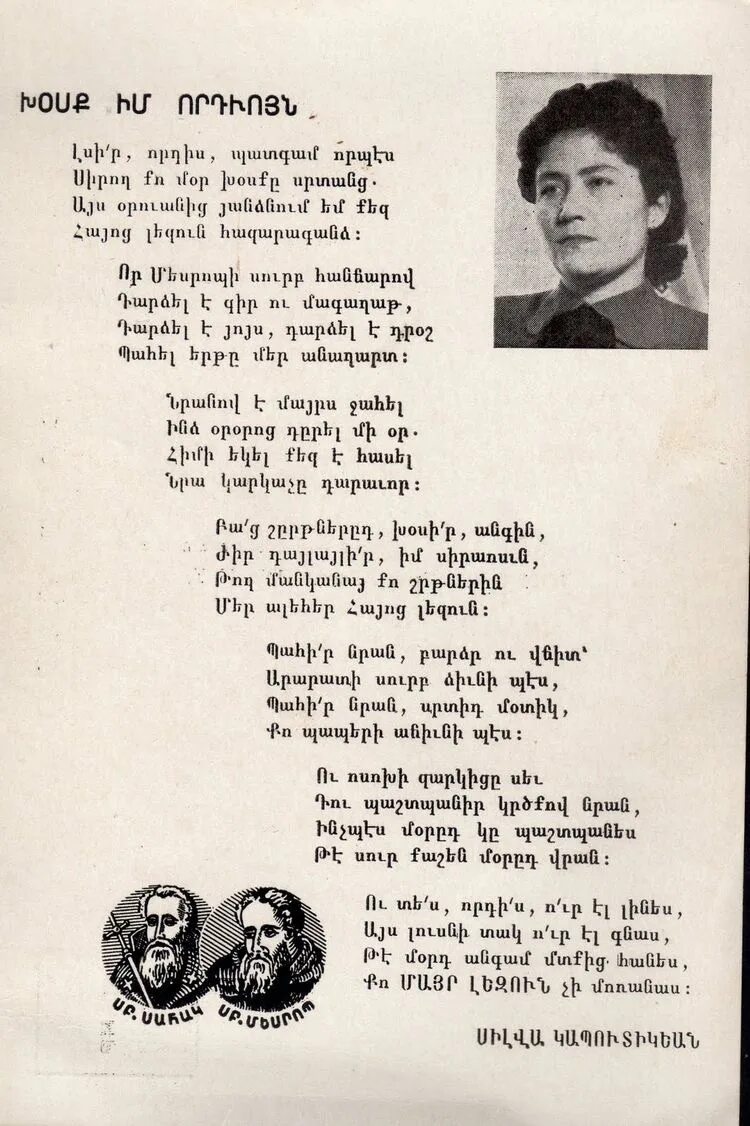 ԽՕՍՔ ԻՄ ՈՐԴՒՈՅՆ
Լսի՛ր, որդիս, պատգամ որպէս
Սիրող քո մօր խօսքը սրտանց.
Այս օրուանից յանձնում եմ քեզ
Հայոց լեզուն հազարագանձ։
Որ Մեսրոպի սուրբ հանճարով
Դարձել է գիր ու մագաղաթ,
Դարձել է յոյս, դարձել է դրօշ
Պահել երթը մեր անաղարտ։
Նրանով է մայրս ջահել
Ինձ օրօրոց դըրել մի օր.
Հիմի եկել քեզ է հասել
Նրա կարկաչը դարաւոր։
Բա՛ց շըրթներըդ, խօսի՛ր, անգին,
Ժիր դայլայլի՛ր, իմ սիրասուն,
Թող մանկանայ քո շրթներին
Մեր ալեհեր Հայոց լեզուն։
Պահի՛ր նրան, բարձր ու վճիտ՝
Արարատի սուրբ ձիւնի պէս,
Պահի՛ր նրան, սրտիդ մօտիկ,
Քո պապերի աճիւնի պէս։
Ու ոսոխի զարկիցը սեւ
Դու պաշտպանիր կրծքով նրան,
Ինչպէս մօրըդ կը պաշտպանես
Թէ սուր քաշեն մօրըդ վրան։
Ու տե՛ս, որդի՛ս, ո՛ւր էլ լինես,
Այս լուսնի տակ ո՛ւր էլ գնաս,
Թէ մօրդ անգամ մտքից հանես,
Քո ՄԱՅՐ ԼԵԶՈՒՆ չի մոռանաս։
ՍԲ. ՍԱՀԱԿ ՍԲ. ՄԵՍՐՈՊ
ՍԻԼՎԱ ԿԱՊՈՒՏԻԿԵԱՆ